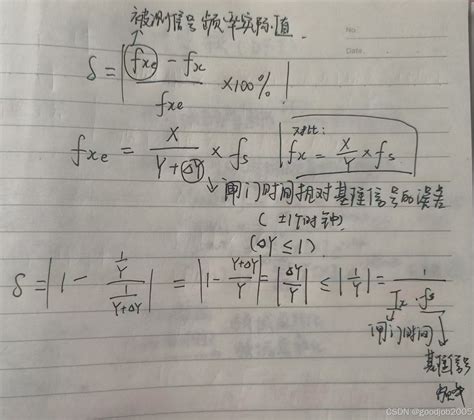 被测信号频率实际值
No.
Date.
δ = | (fxe - fx) / fxe × 100% |
fxe = X / (Y+ΔY) × fs
对比:
fx = X/Y × fs
闸门时间相对基准信号的误差
(±1个时钟)
(ΔY ≤ 1)
δ = | 1 - (1/Y) / (1/(Y+ΔY)) | = | 1 - (Y+ΔY)/Y | = | ΔY/Y | ≤ | 1/Y | = 1 / (Tx · fs)
闸门时间
基准信号
频率
CSDN @goodjob2005